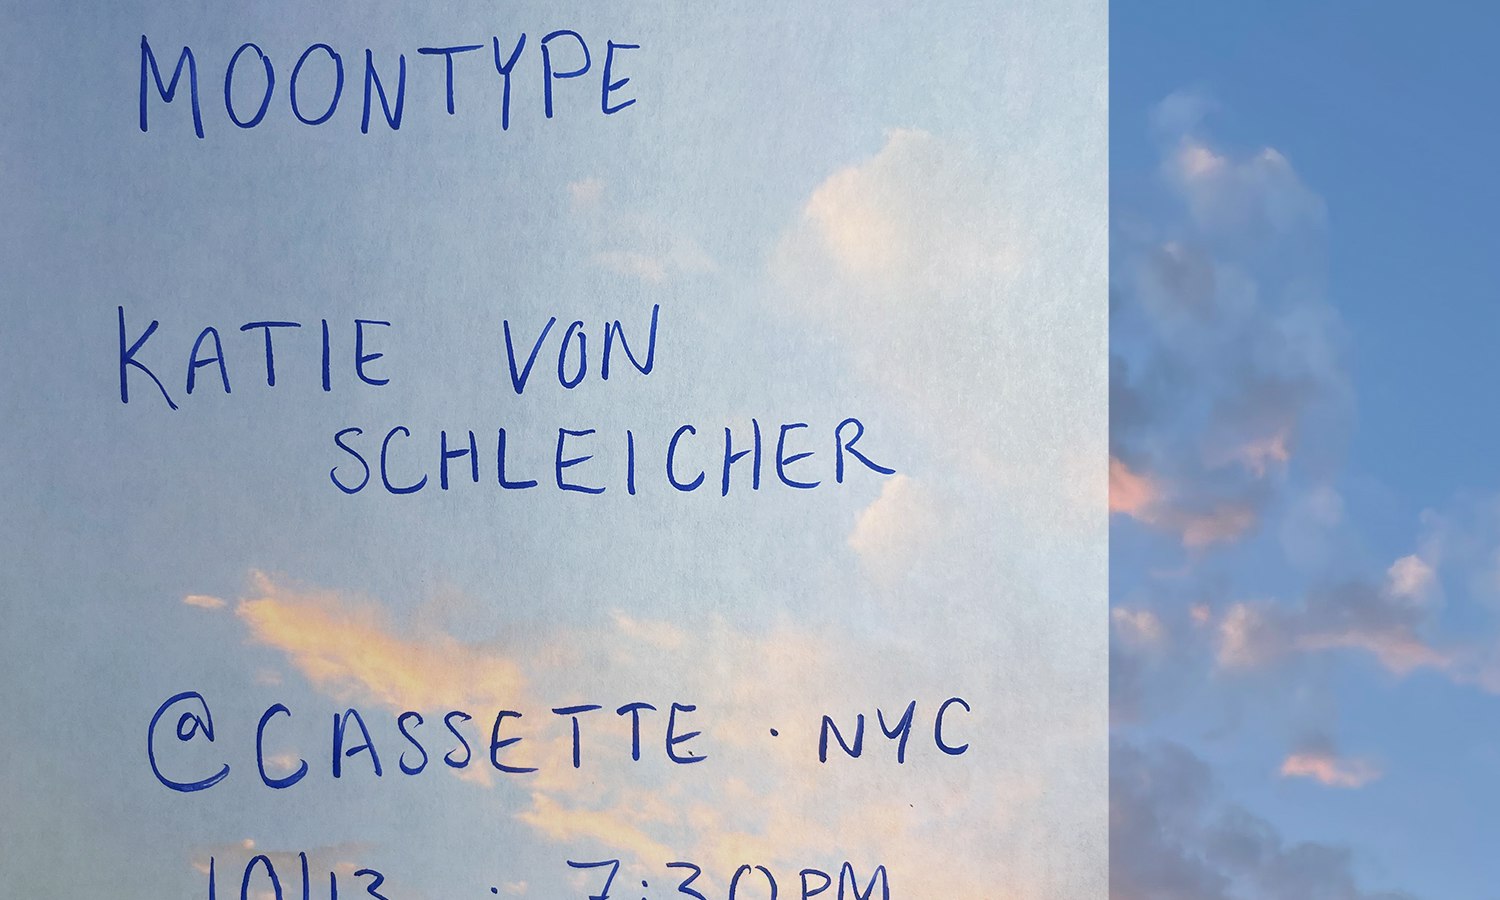 MOONTYPE
KATIE VON
SCHLEICHER
@CASSETTE · NYC
10/13 · 7:30PM